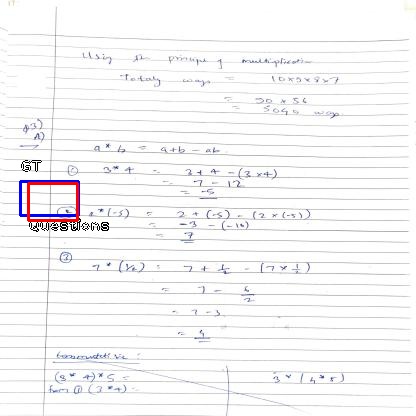 Using the principle of multiplication
Totaly ways = 10x9x8x7
= 90 x 56
= 5040 ways
Q3)
A)
a * b = a+b - ab
① 3 * 4 = 3 + 4 - (3 x 4)
= 7 - 12
= -5
GT
② 2 * (-5) = 2 + (-5) - (2 x (-5))
= -3 - (-10)
= 7
Questions
③
7 * (1/2) = 7 + 1/2 - (7 x 1/2)
= 7 - 6/2
= 7 - 3
= 4
Commutative :
(3 * 4) * 5 =
3 * (4 * 5)
from ① (3 * 4) =